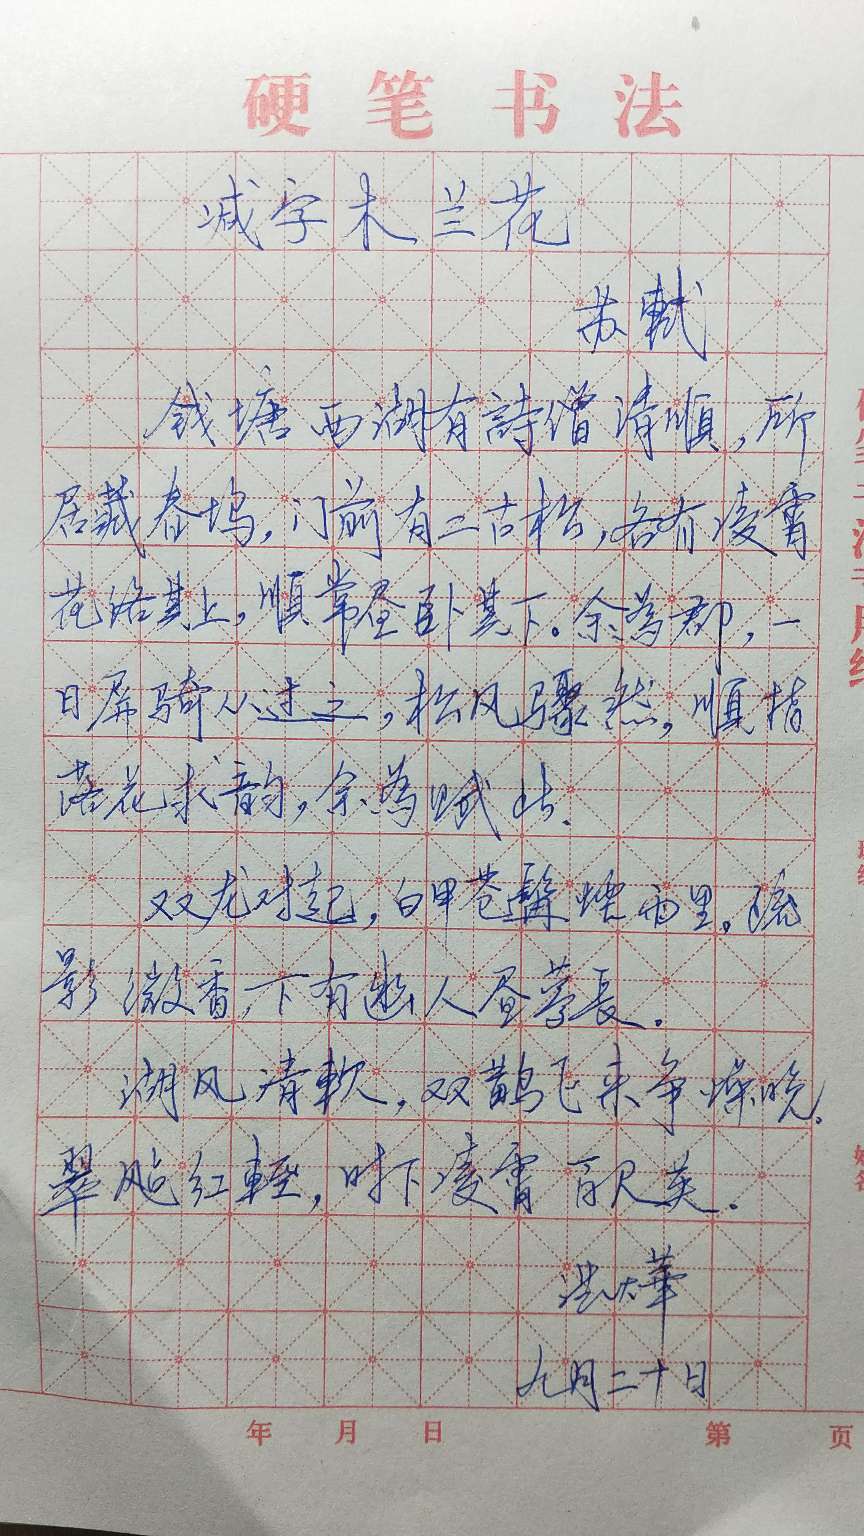 硬笔书法
减字木兰花
苏軾
钱塘西湖有詩僧清順，所
居藏春坞，门前有二古松，各有凌霄
花络其上，順常昼卧其下。余為郡，一
日屏骑从过之，松风骚然，順指
落花求韵，余為赋此.
双龙对起，白甲苍髯煙雨里。疏
影微香，下有幽人昼夢長.
湖风清軟，双鹊飞来争噪晚.
翠飐红輕，时下凌霄百尺英.
洪大華
九月二十日
年 月 日 第 页